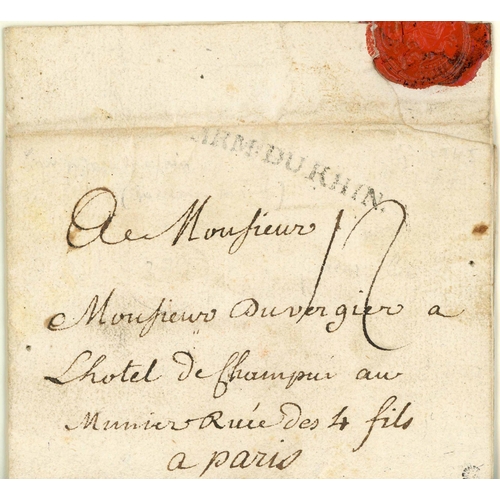 ARM. DU RHIN.
Ae Monsieur
12
Monsieur Duvergier a
Lhotel de Champui au
Marais Ruée des 4 fils
a paris